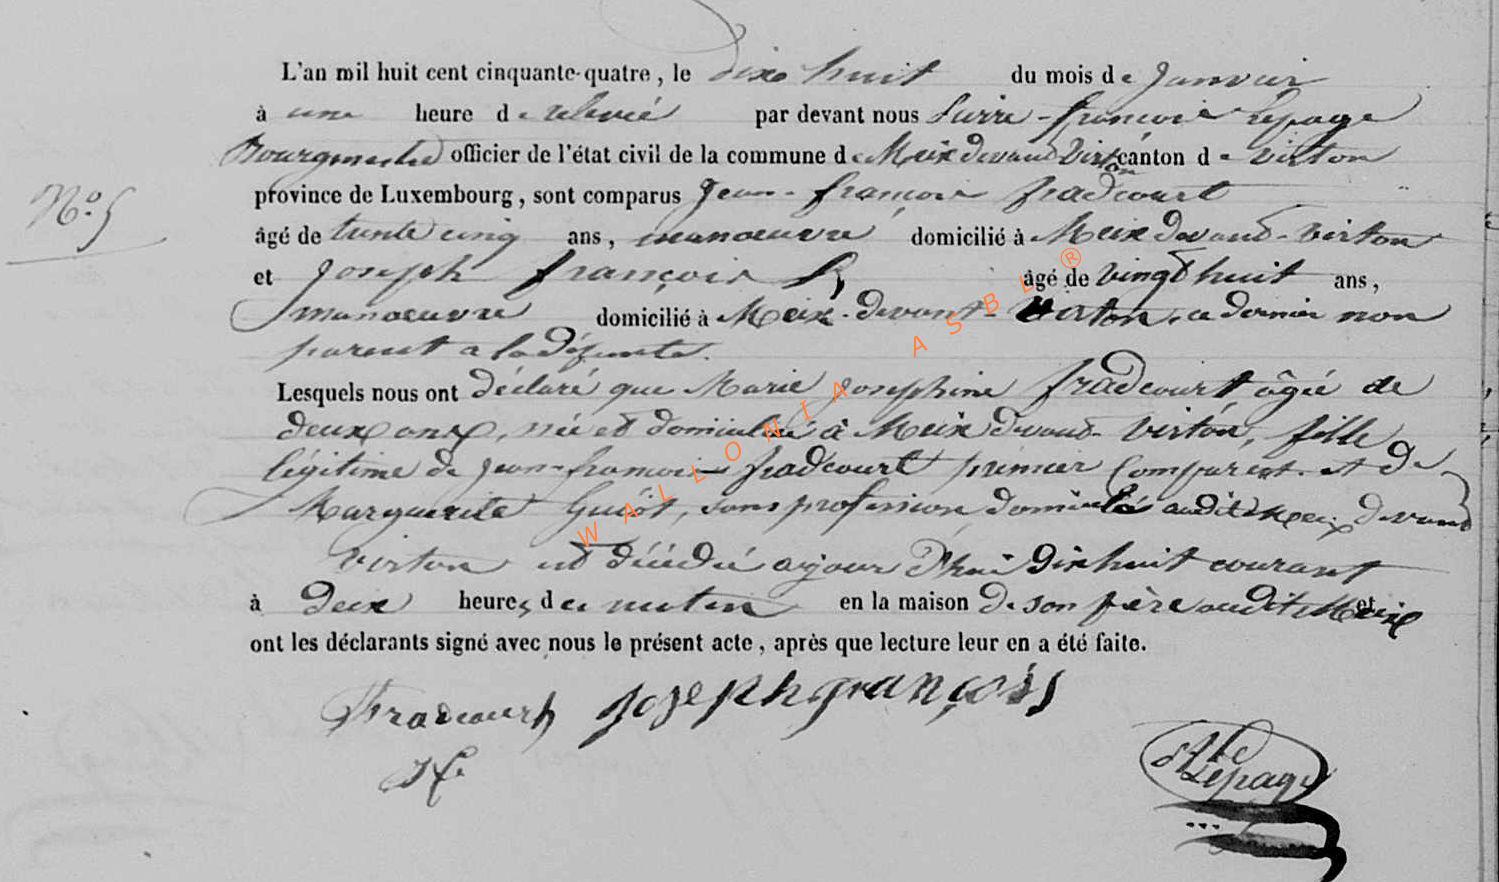 L'an mil huit cent cinquante-quatre, le dix huit du mois de Janvier
à une heure de relevée par devant nous Pierre-françois Lepage
Bourgmestre officier de l'état civil de la commune de Meix devant Virton canton de Virton
province de Luxembourg, sont comparus Jean-françois fradcourt
N° 5
âgé de trente cinq ans, manoeuvre domicilié à Meix devant-virton
et Joseph françois âgé de vingt huit ans,
manoeuvre domicilié à Meix-devant-Virton, ce dernier non
parent a la défunte.
Lesquels nous ont déclaré que Marie Josephine fradcourt âgée de
deux ans, née et domiciliée à Meix devant-Virton, fille
légitime de Jean-francois fradcourt premier Comparant et de
Marguerite Guiot, sans profession, domiciliés audit Meix devant
Virton est décédée aujourd'hui dix huit courant
à deux heures du matin en la maison de son père audit Meix et
ont les déclarants signé avec nous le présent acte, après que lecture leur en a été faite.
Fradcourt Joseph françois
Lepage
WALLONIA ASBL ®